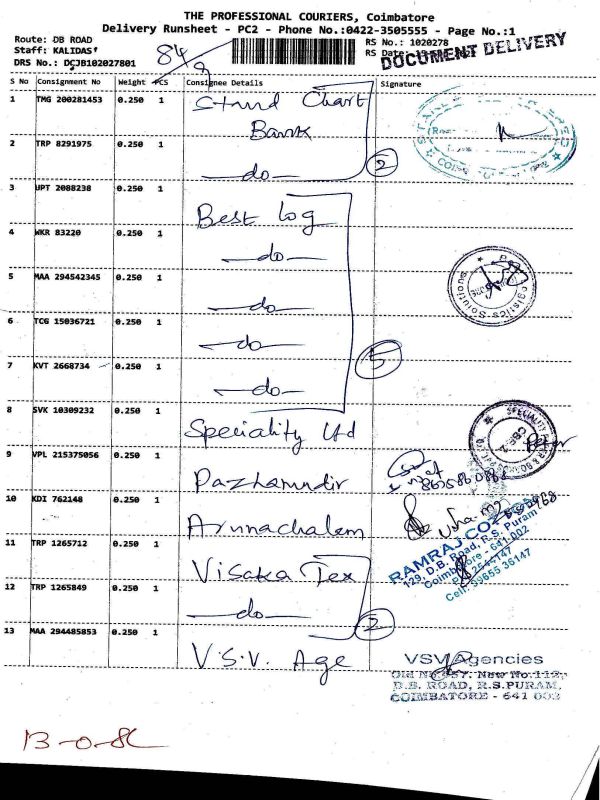 THE PROFESSIONAL COURIERS, Coimbatore
Delivery Runsheet - PC2 - Phone No.:0422-3505555 - Page No.:1
Route: DB ROAD
Staff: KALIDAS'
DRS No.: DCJB102027801
84/9
RS No.: 1020278
RS Date:
DOCUMENT DELIVERY
S No Consignment No Weight PCS Consignee Details Signature
1 TMG 200281453 0.250 1 Stand Chart Bank
2 TRP 8291975 0.250 1 -do-
2
3 UPT 2088238 0.250 1 Best Log
4 WKR 83220 0.250 1 -do-
5 MAA 294542345 0.250 1 -do-
6 TCG 15036721 0.250 1 -do-
7 KVT 2668734 0.250 1 -do-
5
8 SVK 10309232 0.250 1 Speciality Ltd
9 VPL 215375056 0.250 1 Pazhamudir
10 KDI 762148 0.250 1 Arunachalam
11 TRP 1265712 0.250 1 Visaka Tex
RAMRAJ CO
129, D.B. Road, R.S. Puram
Coimbatore - 641 002
2544747
Cell: 99655 36147
12 TRP 1265849 0.250 1 -do-
2
13 MAA 294485853 0.250 1 V.S.V. Age
VSV Agencies
Old No. New No.112,
D.B. ROAD, R.S.PURAM,
COIMBATORE - 641 003
13-0-86